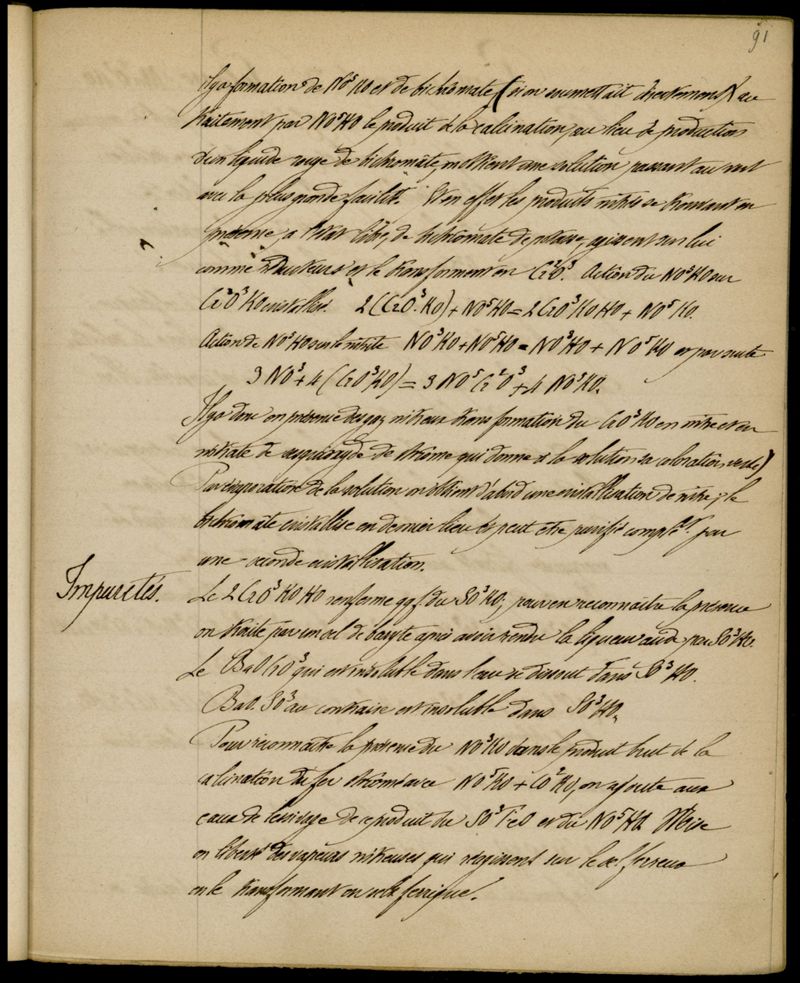 91
il y a formation de NO⁵KO et de bichromate (si on soumettait directement au
traitement par NO⁵HO le produit de la calcination, au lieu de production
d'un liquide rouge de bichromate, on obtient une solution passant au vert
avec la plus grande facilité. Et en effet les produits nitrés se trouvant en
présence, à l'état libre, de bichromate de potasse, agissent sur lui
comme réducteurs et le transforment en Cr²O³. Action du NO⁵HO sur
CrO³KO cristallisé. 2(CrO³.KO) + NO⁵HO = 2CrO³KO HO + NO⁵KO.
Action de NO⁵HO sur le nitrite NO³KO + NO⁵HO = NO³HO + NO⁵KO et par suite
3NO³ + 4(CrO³KO) = 3NO⁵Cr²O³ + 4NO⁵KO.
Il y a donc en présence des gaz nitreux transformation du CrO³KO en nitre et en
nitrate de sesquioxyde de chrome qui donne à la solution sa coloration verte)
Par évaporation de la solution on obtient d'abord une cristallisation de nitre; le
bichromate cristallise en dernier lieu et peut être purifié complt. par
une seconde cristallisation.
Impuretés.
Le 2CrO³KO HO renferme qqf du SO³KO, pour en reconnaître la présence
on traite par un sel de baryte après avoir rendu la liqueur acide par SO³HO.
Le BaO CrO³ qui est insoluble dans l'eau se dissout dans SO³HO.
BaO.SO³ au contraire est insoluble dans SO³HO.
Pour reconnaître la présence du NO³KO dans le produit brut de la
calcination du fer chromé avec NO⁵KO + CO²KO, on ajoute aux
eaux de lessivage de ce produit du SO³FeO et du NO⁵HO.
en liberté des vapeurs nitreuses qui réagissent sur le sel ferreux
en le transformant en sel ferrique.